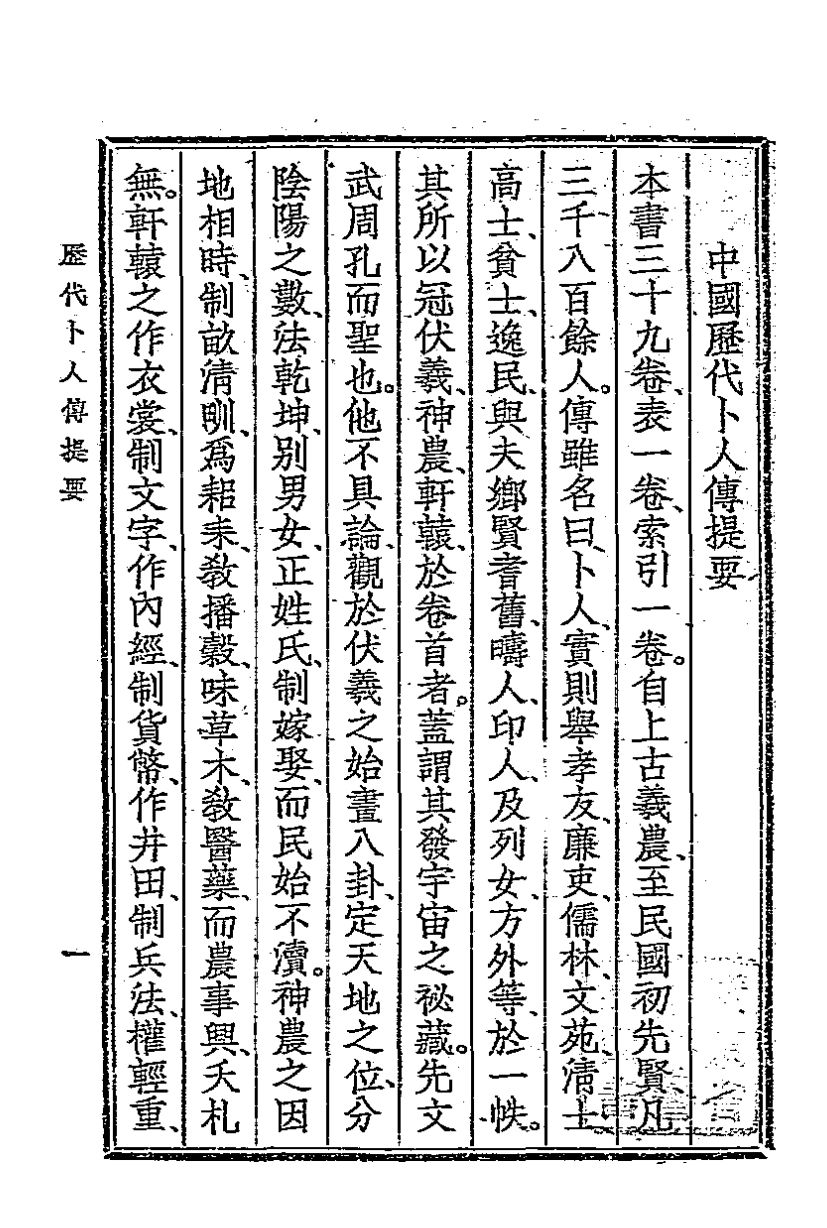 中國歷代卜人傳提要
本書三十九卷、表一卷、索引一卷。自上古羲農、至民國初先賢、凡
三千八百餘人。傳雖名曰、卜人、實則舉孝友、廉吏、儒林、文苑、淸士
高士、貧士、逸民、與夫鄉賢耆舊、疇人、印人、及列女、方外等、於一帙。
其所以冠伏羲、神農、軒轅、於卷首者。蓋謂其發宇宙之祕藏。先文
武周孔而聖也。他不具論、觀於伏羲之始畫八卦、定天地之位、分
陰陽之數、法乾坤、別男女、正姓氏、制嫁娶、而民始不瀆。神農之因
地相時、制畝淸甽、爲耜耒、敎播穀、味草木、敎醫藥、而農事興、夭札
無。軒轅之作衣裳、制文字、作內經、制貨幣、作井田、制兵法、權輕重、
歷代卜人傳提要
一